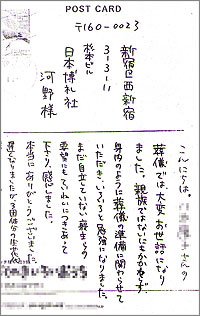 POST CARD
〒160-0023
新宿区西新宿
3-3-11
杉本ビル
日本博礼社
河野様
こんにちは。
葬儀では、大変お世話になり
ました。親族ではないにもかかわらず
身内のように葬儀の準備に関わらせて
いただき、いろいろと勉強になりました。
まだ自立していない弟もちの
要望にもていねいにつきあって
下さり、感謝しました。
本当にありがとうございました。